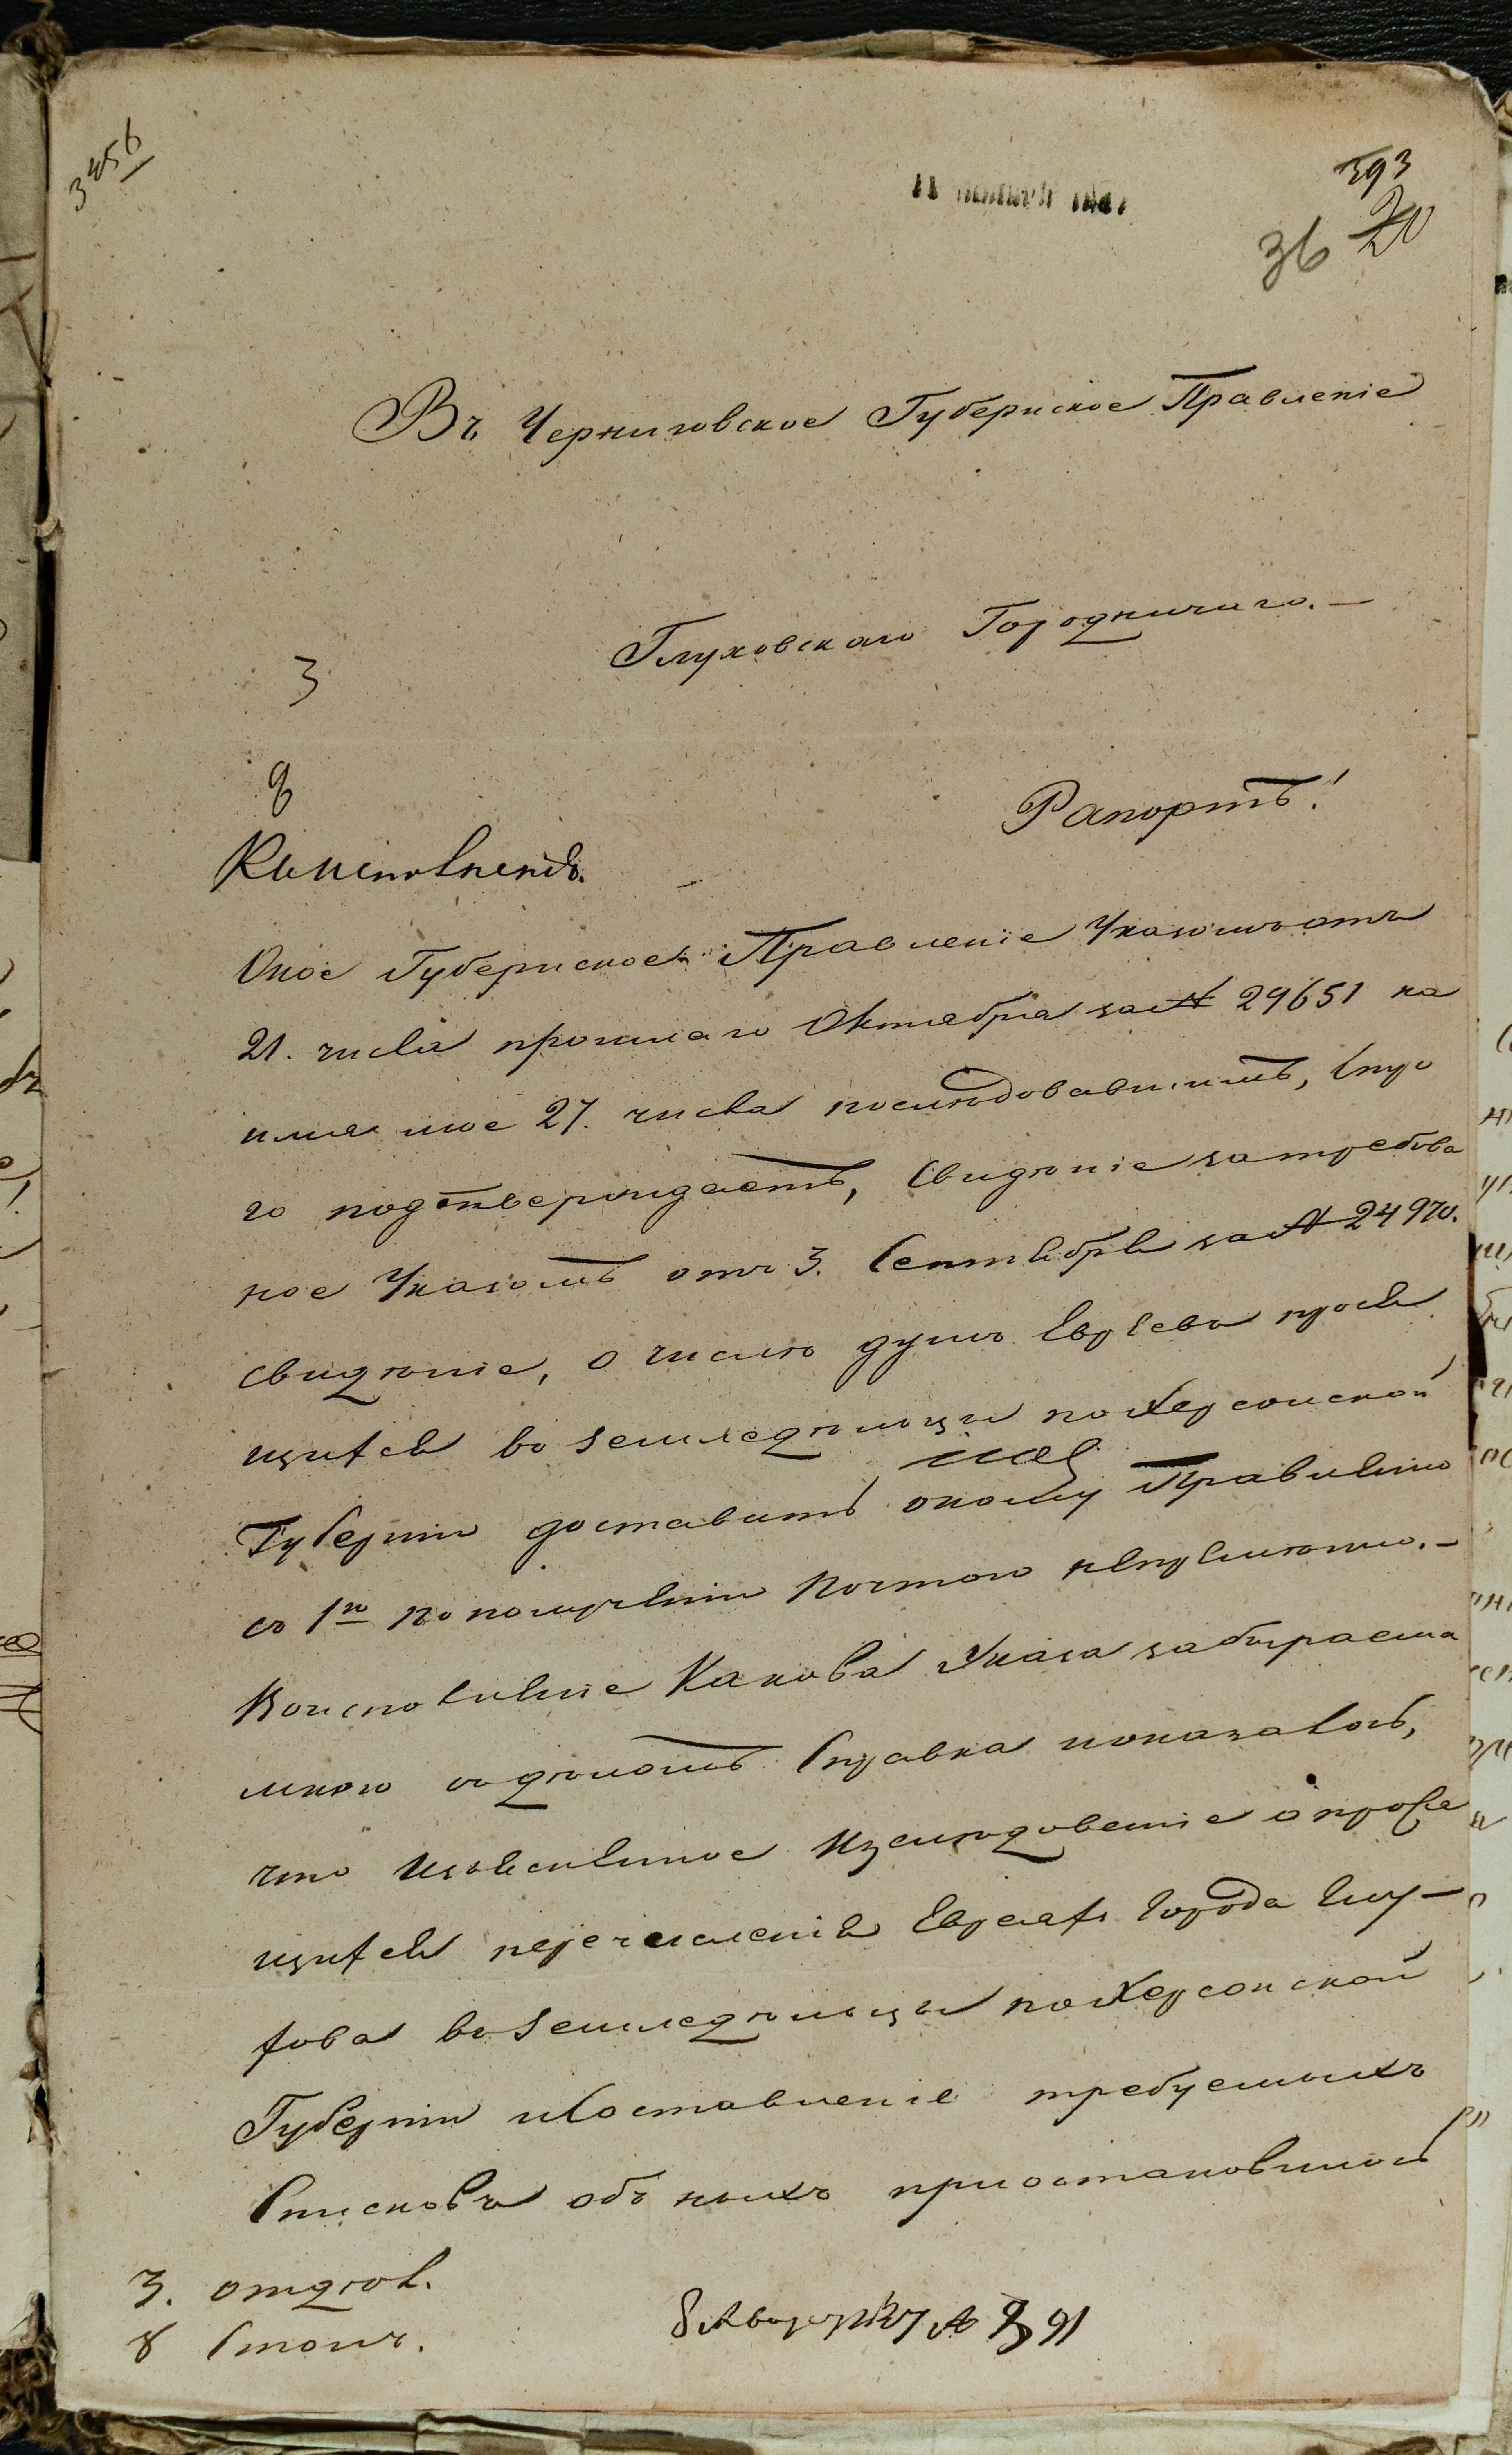 3456
393
36 20
Въ Черниговское Губернское Правленіе
Глуховскаго Городничаго.—
3
8
Рапортъ!
Оное Губернское Правленіе Указомъ отъ
21. числа прошлаго Октября за № 29651 на
имя мое 27. числа последовавшимъ, стро
го подтверждаетъ, сведѣніе затребован
ное Указомъ отъ 3. Сентября за № 24970.
сведѣніе, о числѣ душъ Евреевъ прося
щихся въ земледѣльцы по Херсонской
Губерніи доставить оному Правленію
съ 1й по полученіи почтою непремѣнно.—
Во исполненіе каковаго Указа забираема
мною въ дѣлахъ Справка показала,
что изслѣдованіе о прося
щихся перечисленія Евреяхъ города Глу-
хова въ земледѣльцы по Херсонской
Губерніи и составленіе требуемыхъ
Списковъ объ ныхъ приостановилось
3. отдѣл.
8 Столъ.